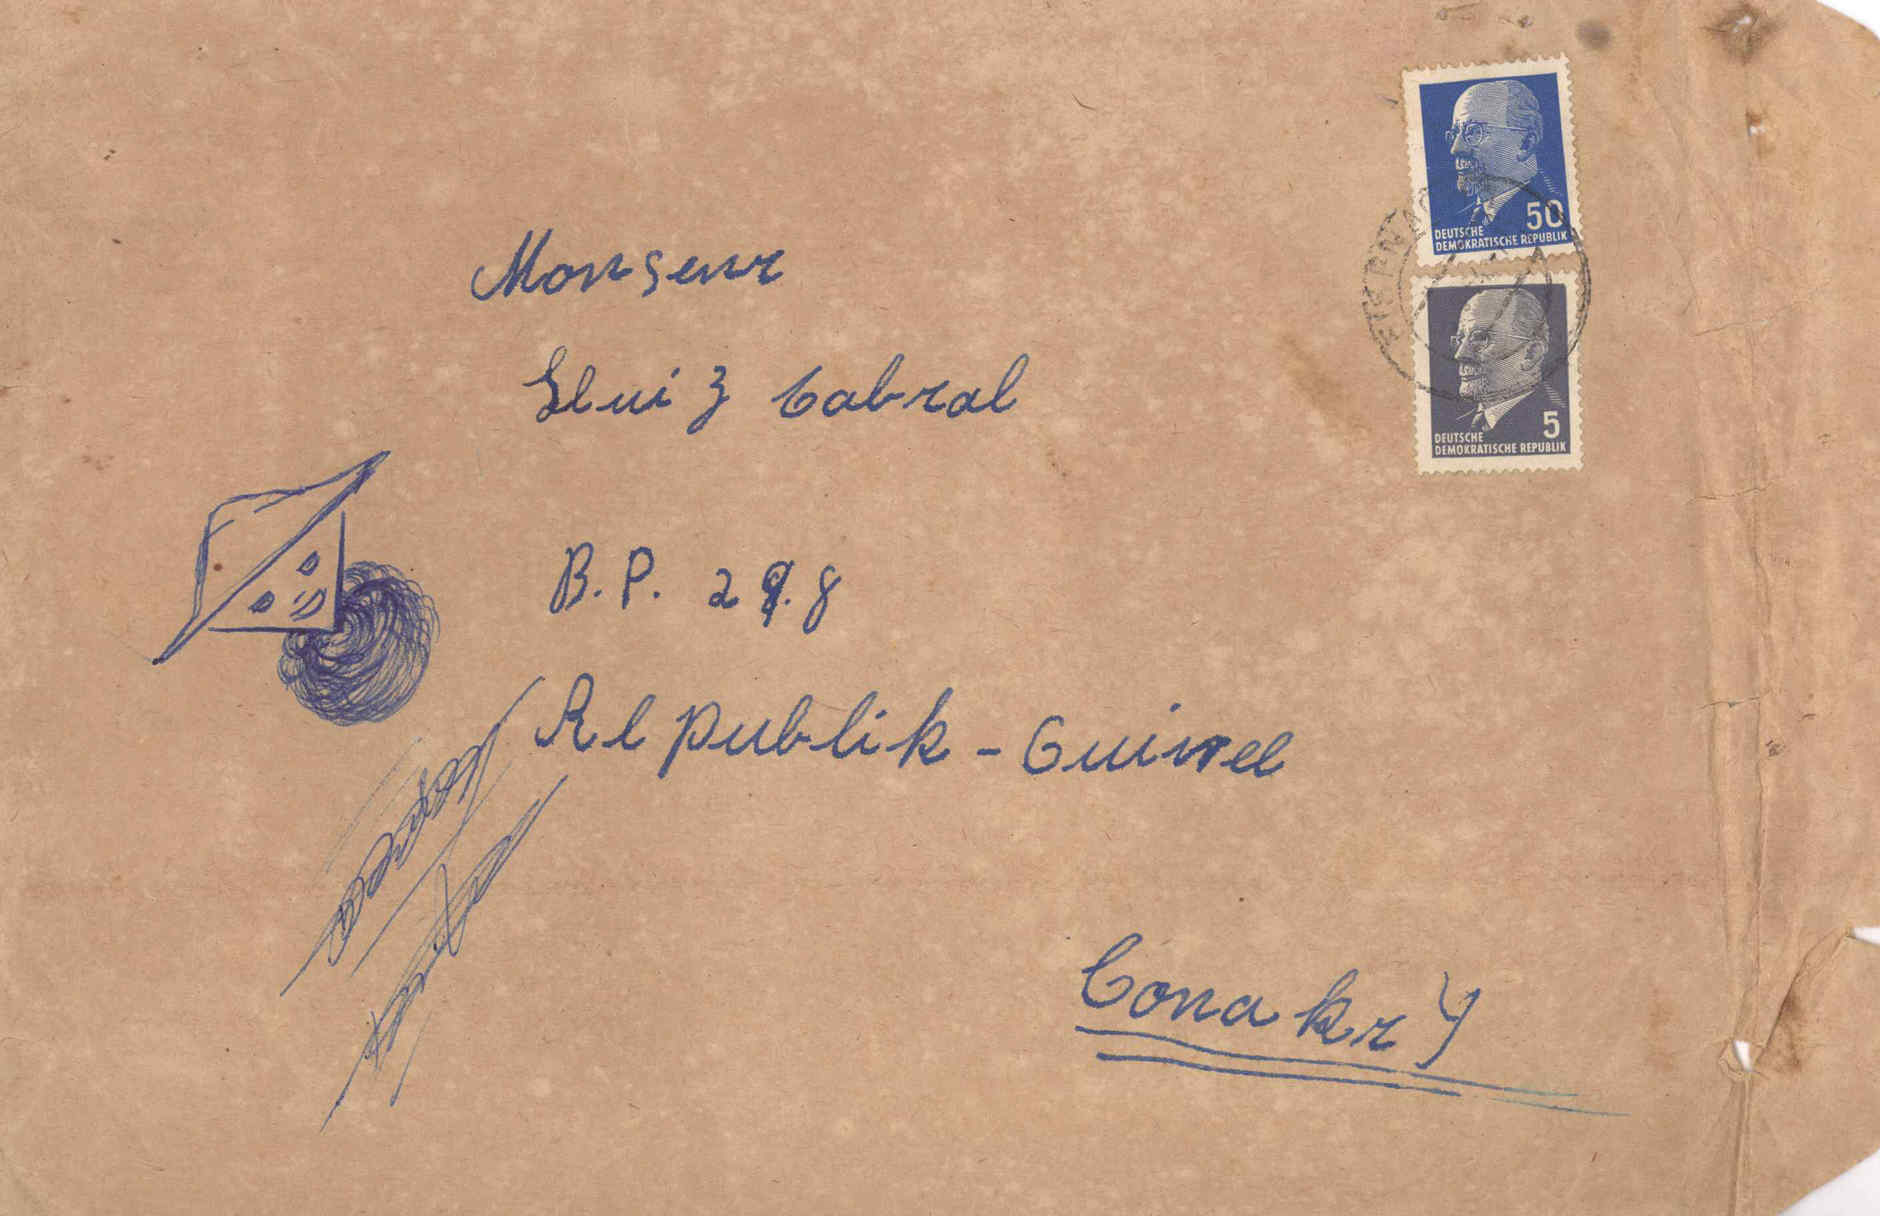 50
DEUTSCHE
DEMOKRATISCHE REPUBLIK
5
DEUTSCHE
DEMOKRATISCHE REPUBLIK
Monseur
Cabral
B.P. 298
Republik - Guinee
Conakry